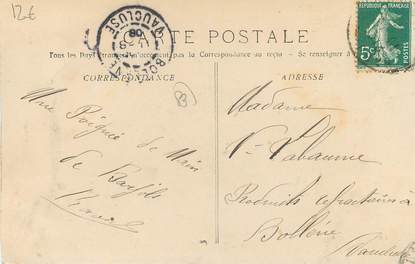 12€
BOLLÈNE
VAUCLUSE
CARTE POSTALE
RÉPUBLIQUE FRANÇAISE
5c
POSTES
Tous les Pays Étrangers n'acceptent pas la Correspondance au recto
Se renseigner à
CORRESPONDANCE
ADRESSE
Une Poignée de Main
de Barjols
Madame
Vve Labaume
Produits réfractaires à
Bollène
Vaucluse